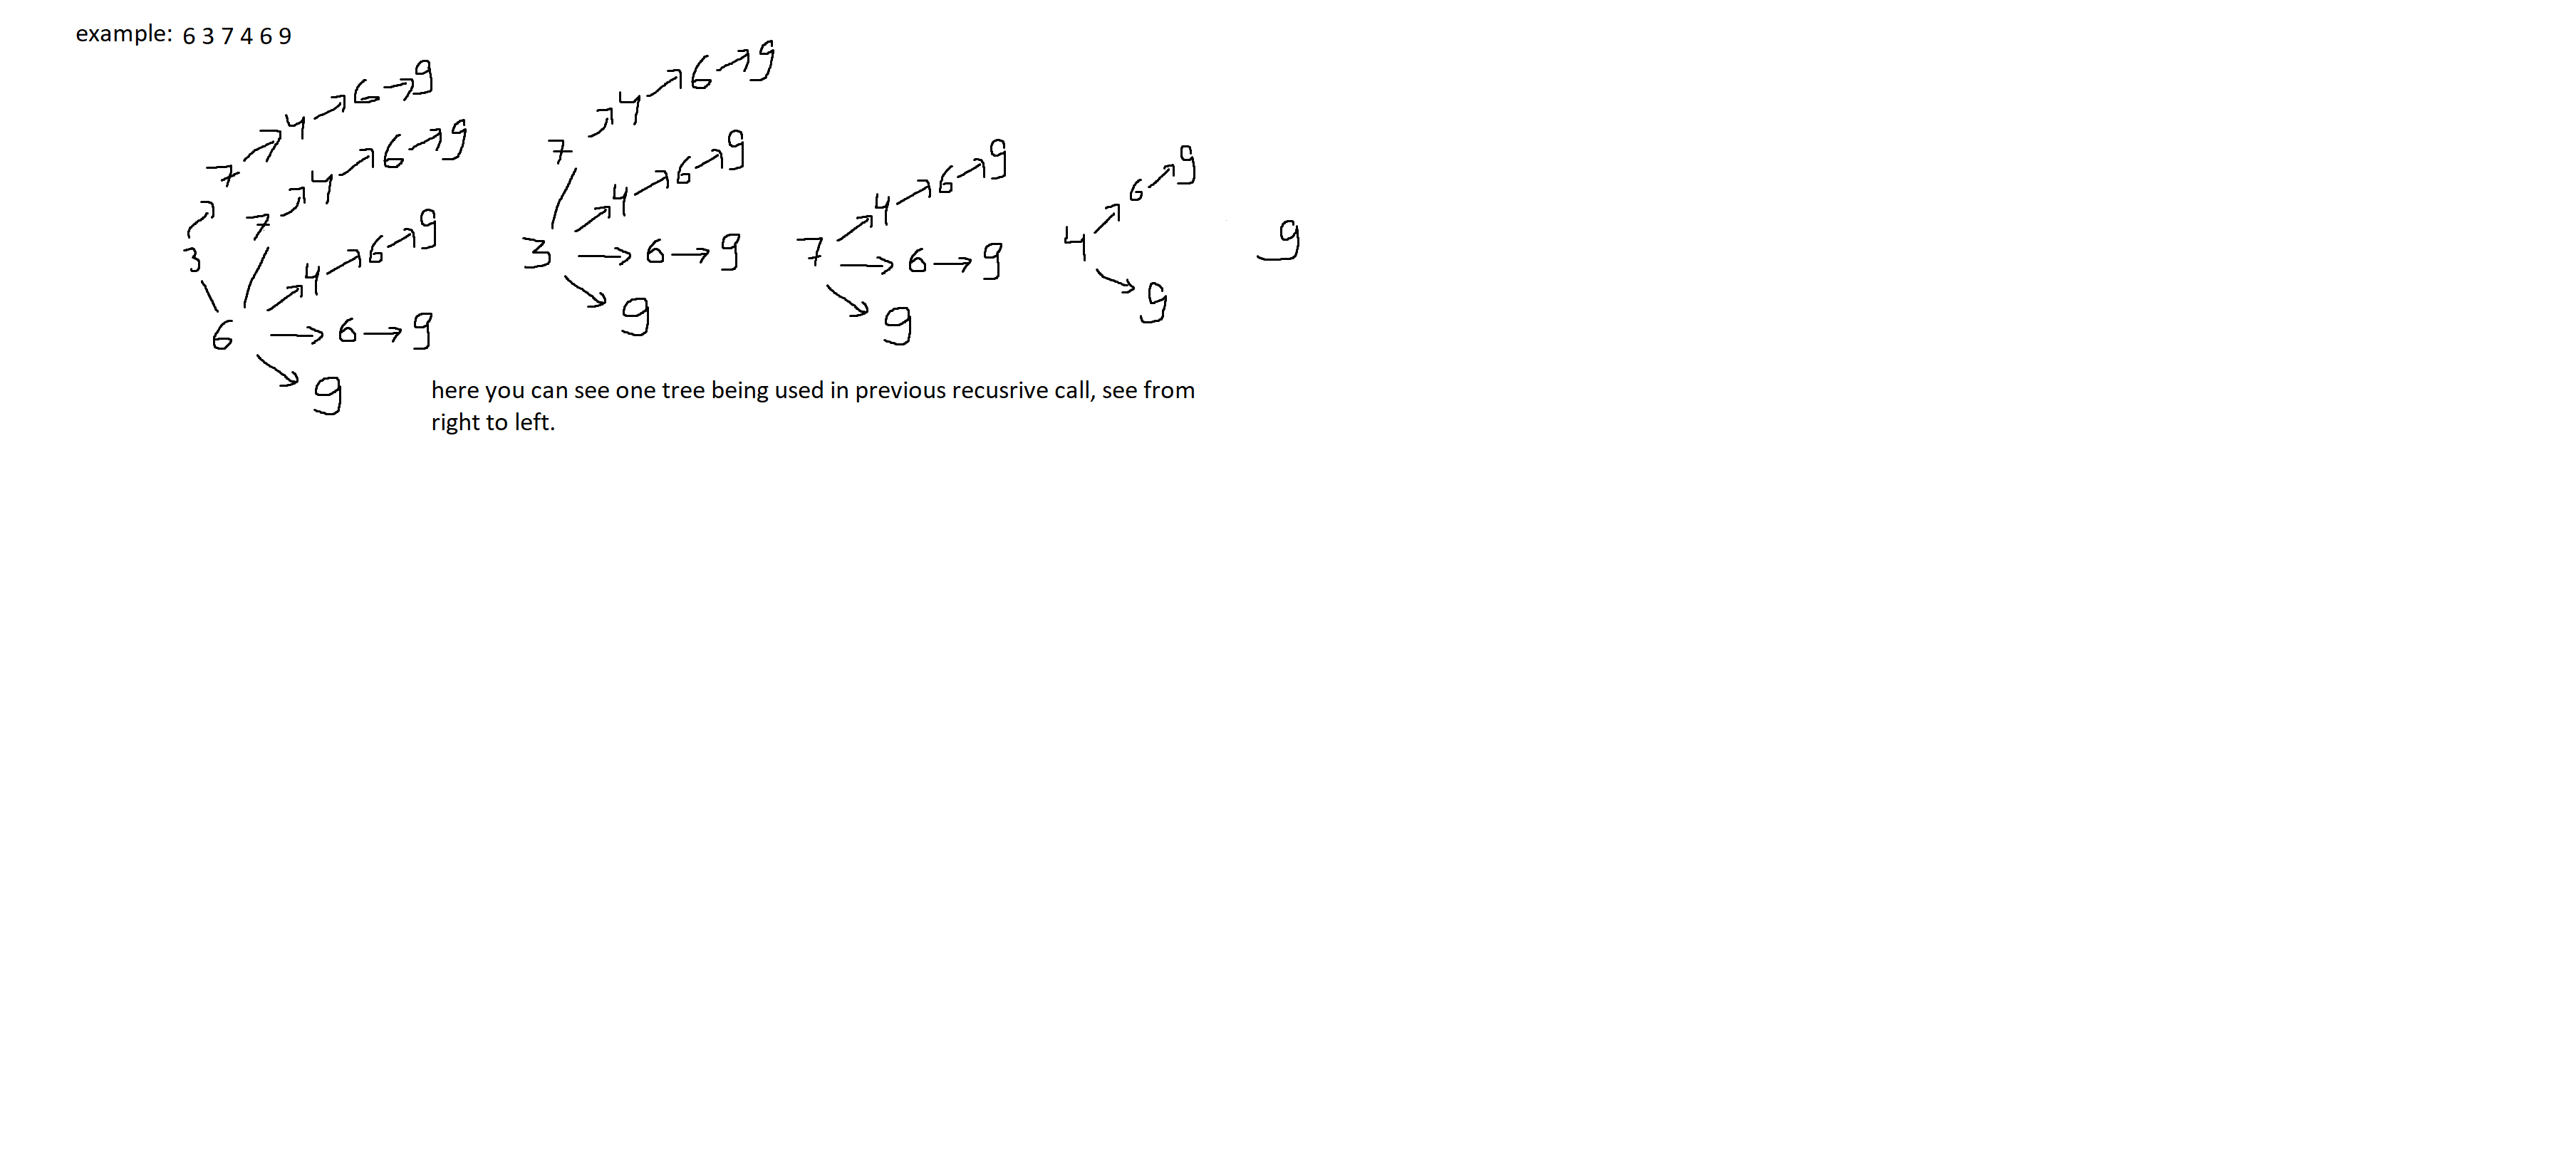 example: 6 3 7 4 6 9
7 → 4 → 6 → 9
3
7 → 4 → 6 → 9
4 → 6 → 9
6 → 6 → 9
9
7 → 4 → 6 → 9
4 → 6 → 9
3 → 6 → 9
9
4 → 6 → 9
7 → 6 → 9
9
6 → 9
4
9
9
here you can see one tree being used in previous recusrive call, see from
right to left.